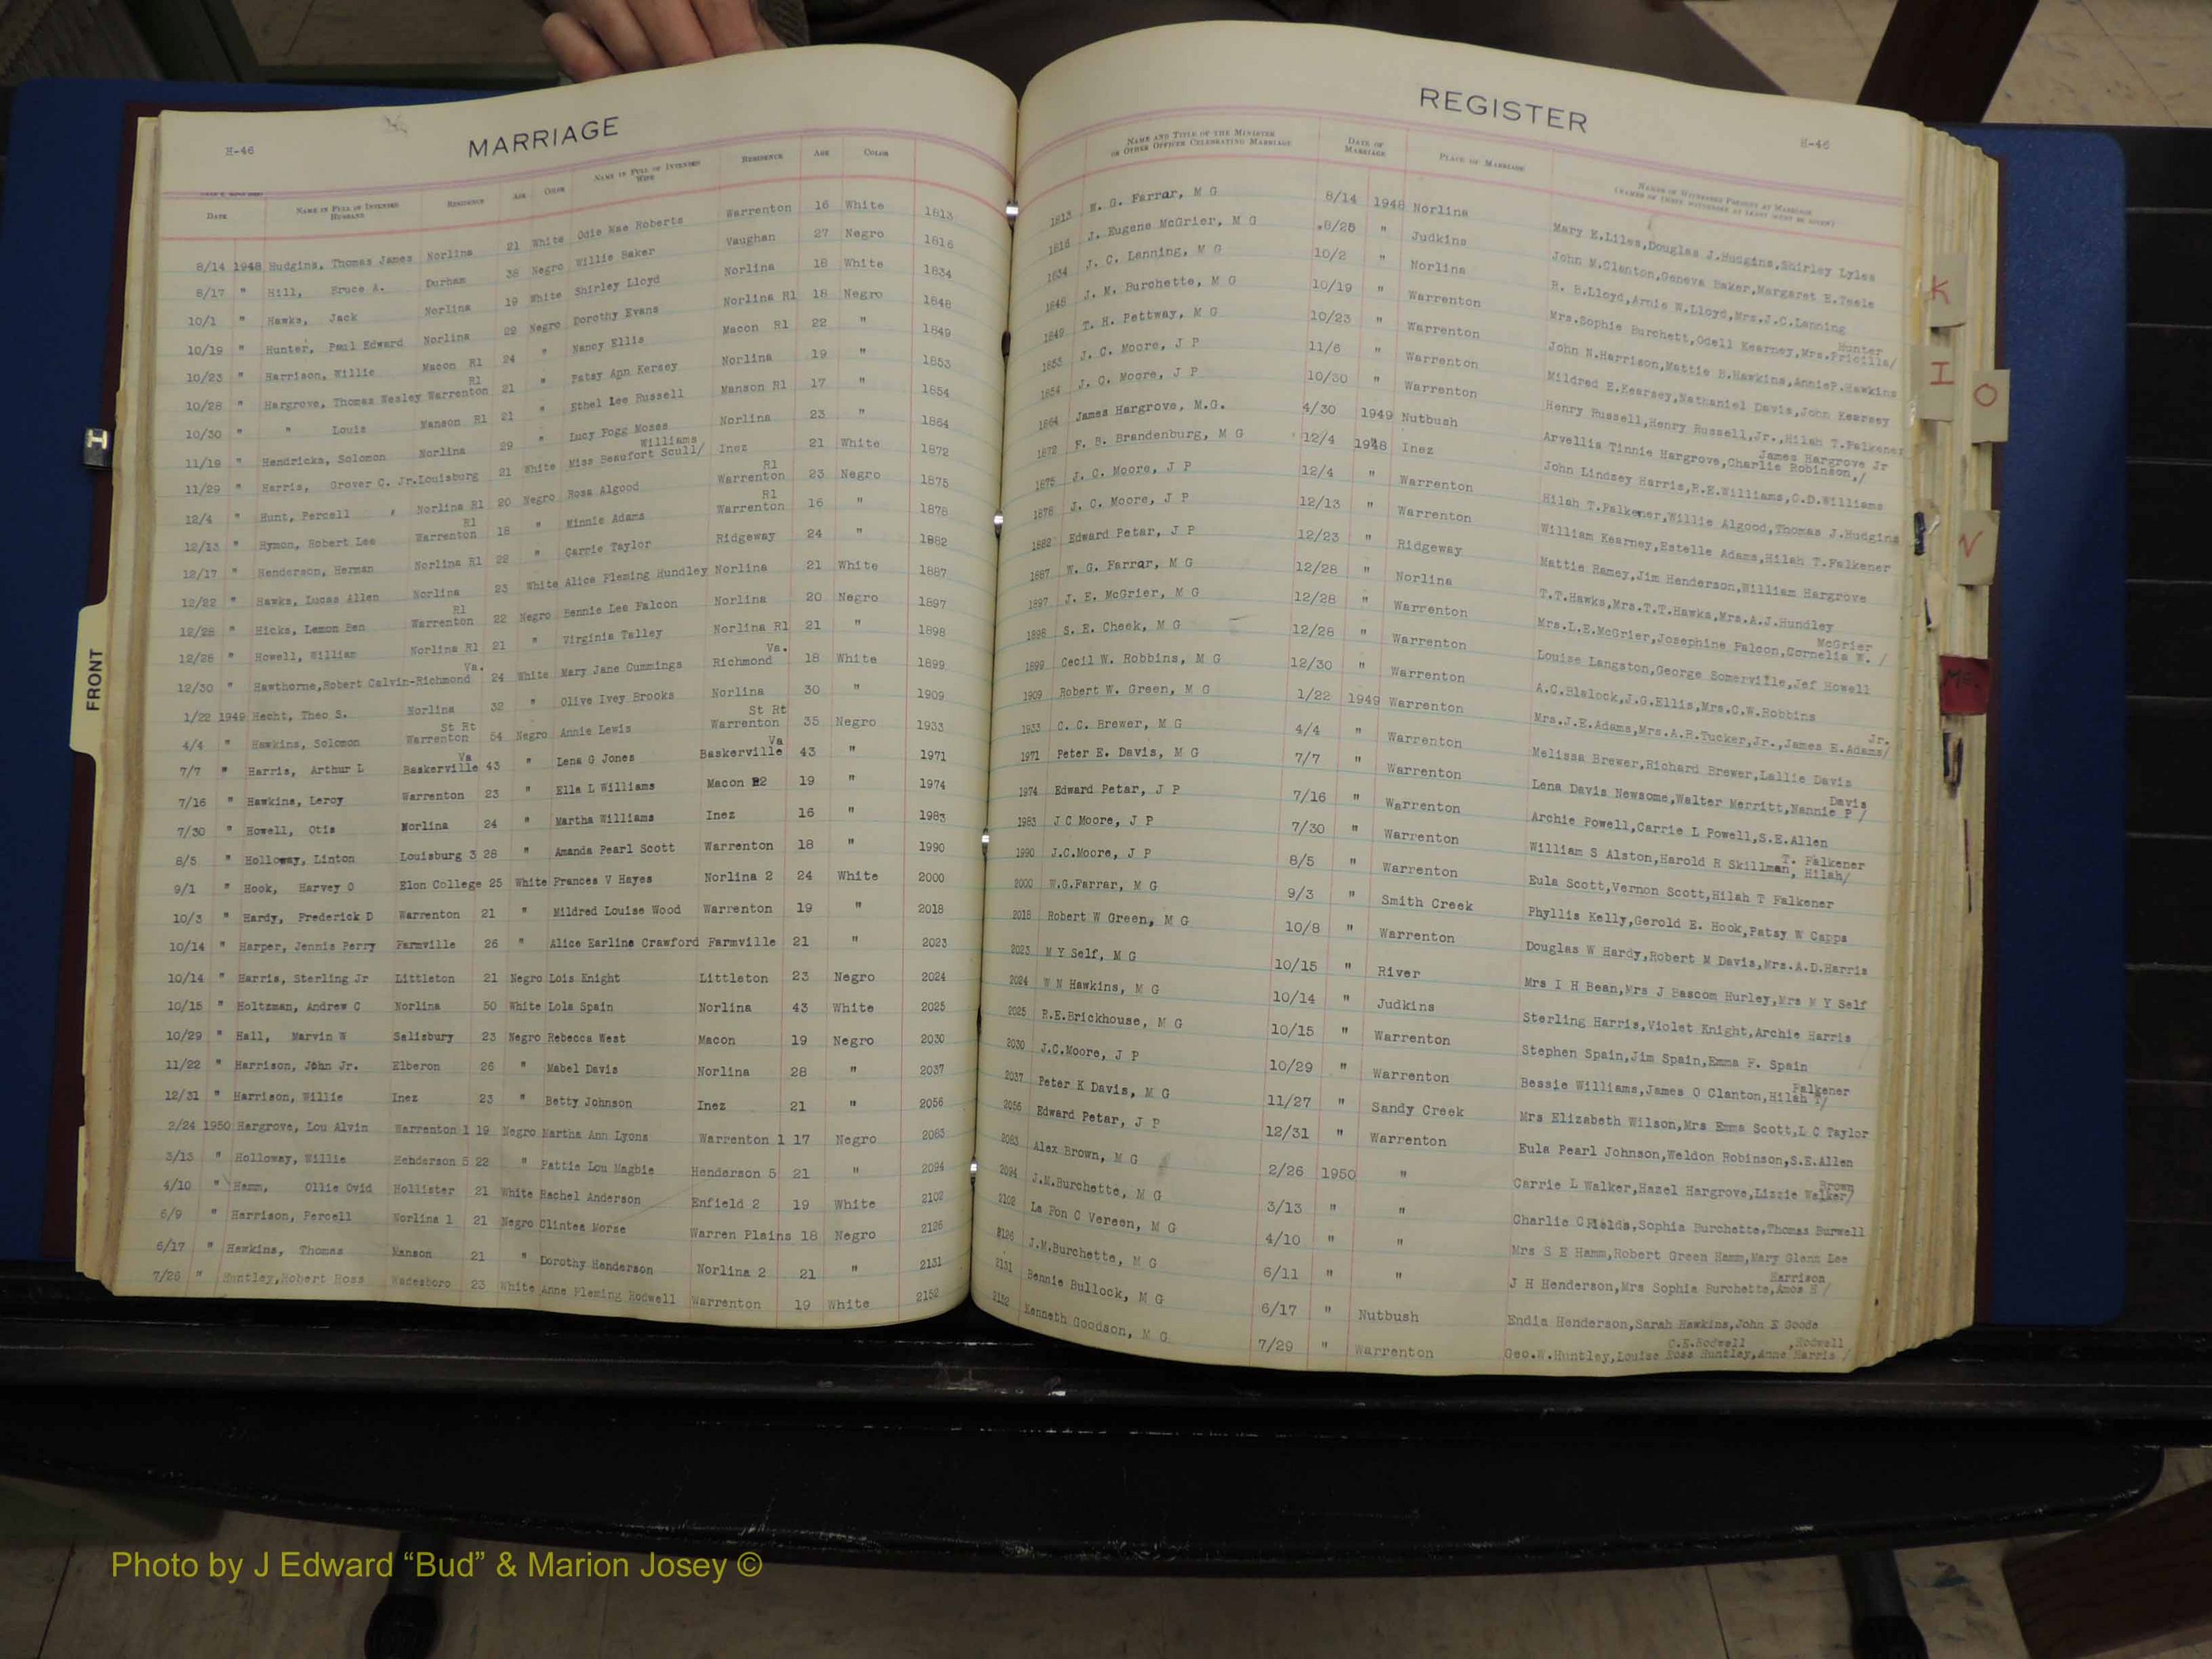 H-46
MARRIAGE
DATE NAME IN FULL OF INTENDED HUSBAND RESIDENCE AGE COLOR NAME IN FULL OF INTENDED WIFE RESIDENCE AGE COLOR
8/14 1948 Hudgins, Thomas James Norlina 21 White Odie Mae Roberts Warrenton 16 White 1813
8/17 " Hill, Bruce A. Durham 38 Negro Willie Baker Vaughan 27 Negro 1816
10/1 " Hawks, Jack Norlina 19 White Shirley Lloyd Norlina 18 White 1834
10/19 " Hunter, Paul Edward Norlina 22 Negro Dorothy Evans Norlina R1 18 Negro 1848
10/23 " Harrison, Willie Macon R1 24 " Nancy Ellis Macon R1 22 " 1849
10/28 " Hargrove, Thomas Wesley Warrenton R1 21 " Patsy Ann Kersey Norlina 19 " 1853
10/30 " " Louis Manson R1 21 " Ethel Lee Russell Manson R1 17 " 1854
11/19 " Hendricks, Solomon Norlina 29 " Lucy Fogg Moses Norlina 23 " 1864
11/29 " Harris, Grover C. Jr. Louisburg 21 White Miss Beaufort Scull/ Williams Inez 21 White 1872
12/4 " Hunt, Percell Norlina R1 20 Negro Rosa Algood Warrenton R1 23 Negro 1875
12/13 " Hymon, Robert Lee Warrenton R1 18 " Minnie Adams Warrenton R1 16 " 1878
12/17 " Henderson, Herman Norlina R1 22 " Carrie Taylor Ridgeway 24 " 1882
12/22 " Hawks, Lucas Allen Norlina 23 White Alice Fleming Hundley Norlina 21 White 1887
12/28 " Hicks, Lemon Ben Warrenton R1 22 Negro Bennie Lee Falcon Norlina 20 Negro 1897
12/28 " Howell, William Norlina R1 21 " Virginia Talley Norlina R1 21 " 1898
12/30 " Hawthorne, Robert Calvin-Richmond Va. 24 White Mary Jane Cummings Richmond Va. 18 White 1899
1/22 1949 Hecht, Theo S. Norlina 32 " Olive Ivey Brooks Norlina 30 " 1909
4/4 " Hawkins, Solomon Warrenton St Rt 54 Negro Annie Lewis Warrenton St Rt 35 Negro 1933
7/7 " Harris, Arthur L Baskerville Va 43 " Lena G Jones Baskerville Va 43 " 1971
7/16 " Hawkins, Leroy Warrenton 23 " Ella L Williams Macon R2 19 " 1974
7/30 " Howell, Otis Norlina 24 " Martha Williams Inez 16 " 1983
8/5 " Holloway, Linton Louisburg 3 28 " Amanda Pearl Scott Warrenton 18 " 1990
9/1 " Hook, Harvey O Elon College 25 White Frances V Hayes Norlina 2 24 White 2000
10/3 " Hardy, Frederick D Warrenton 21 " Mildred Louise Wood Warrenton 19 " 2018
10/14 " Harper, Jennis Perry Farmville 26 " Alice Earline Crawford Farmville 21 " 2023
10/14 " Harris, Sterling Jr Littleton 21 Negro Lois Knight Littleton 23 Negro 2024
10/15 " Holtzman, Andrew C Norlina 50 White Lola Spain Norlina 43 White 2025
10/29 " Hall, Marvin W Salisbury 23 Negro Rebecca West Macon 19 Negro 2030
11/22 " Harrison, John Jr. Elberon 26 " Mabel Davis Norlina 28 " 2037
12/31 " Harrison, Willie Inez 23 " Betty Johnson Inez 21 " 2056
2/24 1950 Hargrove, Lou Alvin Warrenton 1 19 Negro Martha Ann Lyons Warrenton 1 17 Negro 2083
3/13 " Holloway, Willie Henderson 5 22 " Pattie Lou Magbie Henderson 5 21 " 2094
4/10 " Hamm, Ollie Ovid Hollister 21 White Rachel Anderson Enfield 2 19 White 2102
6/9 " Harrison, Percell Norlina 1 21 Negro Clintea Morse Warren Plains 18 Negro 2126
6/17 " Hawkins, Thomas Manson 21 " Dorothy Henderson Norlina 2 21 " 2131
7/26 " Huntley, Robert Ross Wadesboro 23 White Anne Fleming Rodwell Warrenton 19 White 2152
REGISTER
H-46
NAME AND TITLE OF THE MINISTER OR OTHER OFFICER CELEBRATING MARRIAGE DATE OF MARRIAGE PLACE OF MARRIAGE NAMES OF WITNESSES PRESENT AT MARRIAGE
1813 W. G. Farrar, M G 8/14 1948 Norlina Mary E.Liles,Douglas J.Hudgins,Shirley Lyles
1816 J. Eugene McGrier, M G 8/25 " Judkins John M.Clanton,Geneva Baker,Margaret E.Teele
1834 J. C. Lanning, M G 10/2 " Norlina R. B.Lloyd,Arnie W.Lloyd,Mrs.J.C.Lanning
1848 J. M. Burchette, M G 10/19 " Warrenton Mrs.Sophie Burchett,Odell Kearney,Mrs.Pricilla/ Hunter
1849 T. H. Pettway, M G 10/23 " Warrenton John N.Harrison,Mattie B.Hawkins,AnnieP.Hawkins
1853 J. C. Moore, J P 11/6 " Warrenton Mildred E.Kearsey,Nathaniel Davis,John Kearsey
1854 J. C. Moore, J P 10/30 " Warrenton Henry Russell,Henry Russell,Jr.,Hilah T.Falkener
1864 James Hargrove, M.G. 4/30 1949 Nutbush Arvellia Tinnie Hargrove,Charlie Robinson,/ James Hargrove Jr
1872 F. B. Brandenburg, M G 12/4 1948 Inez John Lindsey Harris,R.E.Williams,O.D.Williams
1875 J. C. Moore, J P 12/4 " Warrenton Hilah T.Falkener,Willie Algood,Thomas J.Hudgins
1878 J. C. Moore, J P 12/13 " Warrenton William Kearney,Estelle Adams,Hilah T.Falkener
1882 Edward Petar, J P 12/23 " Ridgeway Mattie Ramey,Jim Henderson,William Hargrove
1887 W. G. Farrar, M G 12/28 " Norlina T.T.Hawks,Mrs.T.T.Hawks,Mrs.A.J.Hundley
1897 J. E. McGrier, M G 12/28 " Warrenton Mrs.L.E.McGrier,Josephine Falcon,Cornelia W. / McGrier
1898 S. E. Cheek, M G 12/28 " Warrenton Louise Langston,George Somerville,Jef Howell
1899 Cecil W. Robbins, M G 12/30 " Warrenton A.C.Blalock,J.G.Ellis,Mrs.C.W.Robbins
1909 Robert W. Green, M G 1/22 1949 Warrenton Mrs.J.E.Adams,Mrs.A.R.Tucker,Jr.,James E.Adams/ Jr.
1933 C. C. Brewer, M G 4/4 " Warrenton Melissa Brewer,Richard Brewer,Lallie Davis
1971 Peter E. Davis, M G 7/7 " Warrenton Lena Davis Newsome,Walter Merritt,Nannie P / Davis
1974 Edward Petar, J P 7/16 " Warrenton Archie Powell,Carrie L Powell,S.E.Allen
1983 J C Moore, J P 7/30 " Warrenton William S Alston,Harold R Skillman, Hilah/ T. Falkener
1990 J.C.Moore, J P 8/5 " Warrenton Eula Scott,Vernon Scott,Hilah T Falkener
2000 W.G.Farrar, M G 9/3 " Smith Creek Phyllis Kelly,Gerold E. Hook,Patsy W Capps
2018 Robert W Green, M G 10/8 " Warrenton Douglas W Hardy,Robert M Davis,Mrs.A.D.Harris
2023 M Y Self, M G 10/15 " River Mrs I H Bean,Mrs J Bascom Hurley,Mrs M Y Self
2024 W N Hawkins, M G 10/14 " Judkins Sterling Harris,Violet Knight,Archie Harris
2025 R.E.Brickhouse, M G 10/15 " Warrenton Stephen Spain,Jim Spain,Emma F. Spain
2030 J.C.Moore, J P 10/29 " Warrenton Bessie Williams,James O Clanton,Hilah T/ Falkener
2037 Peter K Davis, M G 11/27 " Sandy Creek Mrs Elizabeth Wilson,Mrs Emma Scott,L C Taylor
2056 Edward Petar, J P 12/31 " Warrenton Eula Pearl Johnson,Weldon Robinson,S.E.Allen
2083 Alex Brown, M G 2/26 1950 " Carrie L Walker,Hazel Hargrove,Lizzie Walker/ Brown
2094 J.M.Burchette, M G 3/13 " " Charlie C Fields,Sophia Burchette,Thomas Burwell
2102 La Fon C Vereen, M G 4/10 " " Mrs S E Hamm,Robert Green Hamm,Mary Glenn Lee
2126 J.M.Burchette, M G 6/11 " " J H Henderson,Mrs Sophia Burchette,Amos H / Harrison
2131 Bennie Bullock, M G 6/17 " Nutbush Endia Henderson,Sarah Hawkins,John E Goode
2152 Kenneth Goodson, M G 7/29 " Warrenton Geo.W.Huntley,Louise Ross Huntley,Anne Harris / C.E.Rodwell ,Rodwell
FRONT
I
K
I
O
V
Mc
Photo by J Edward “Bud” & Marion Josey ©